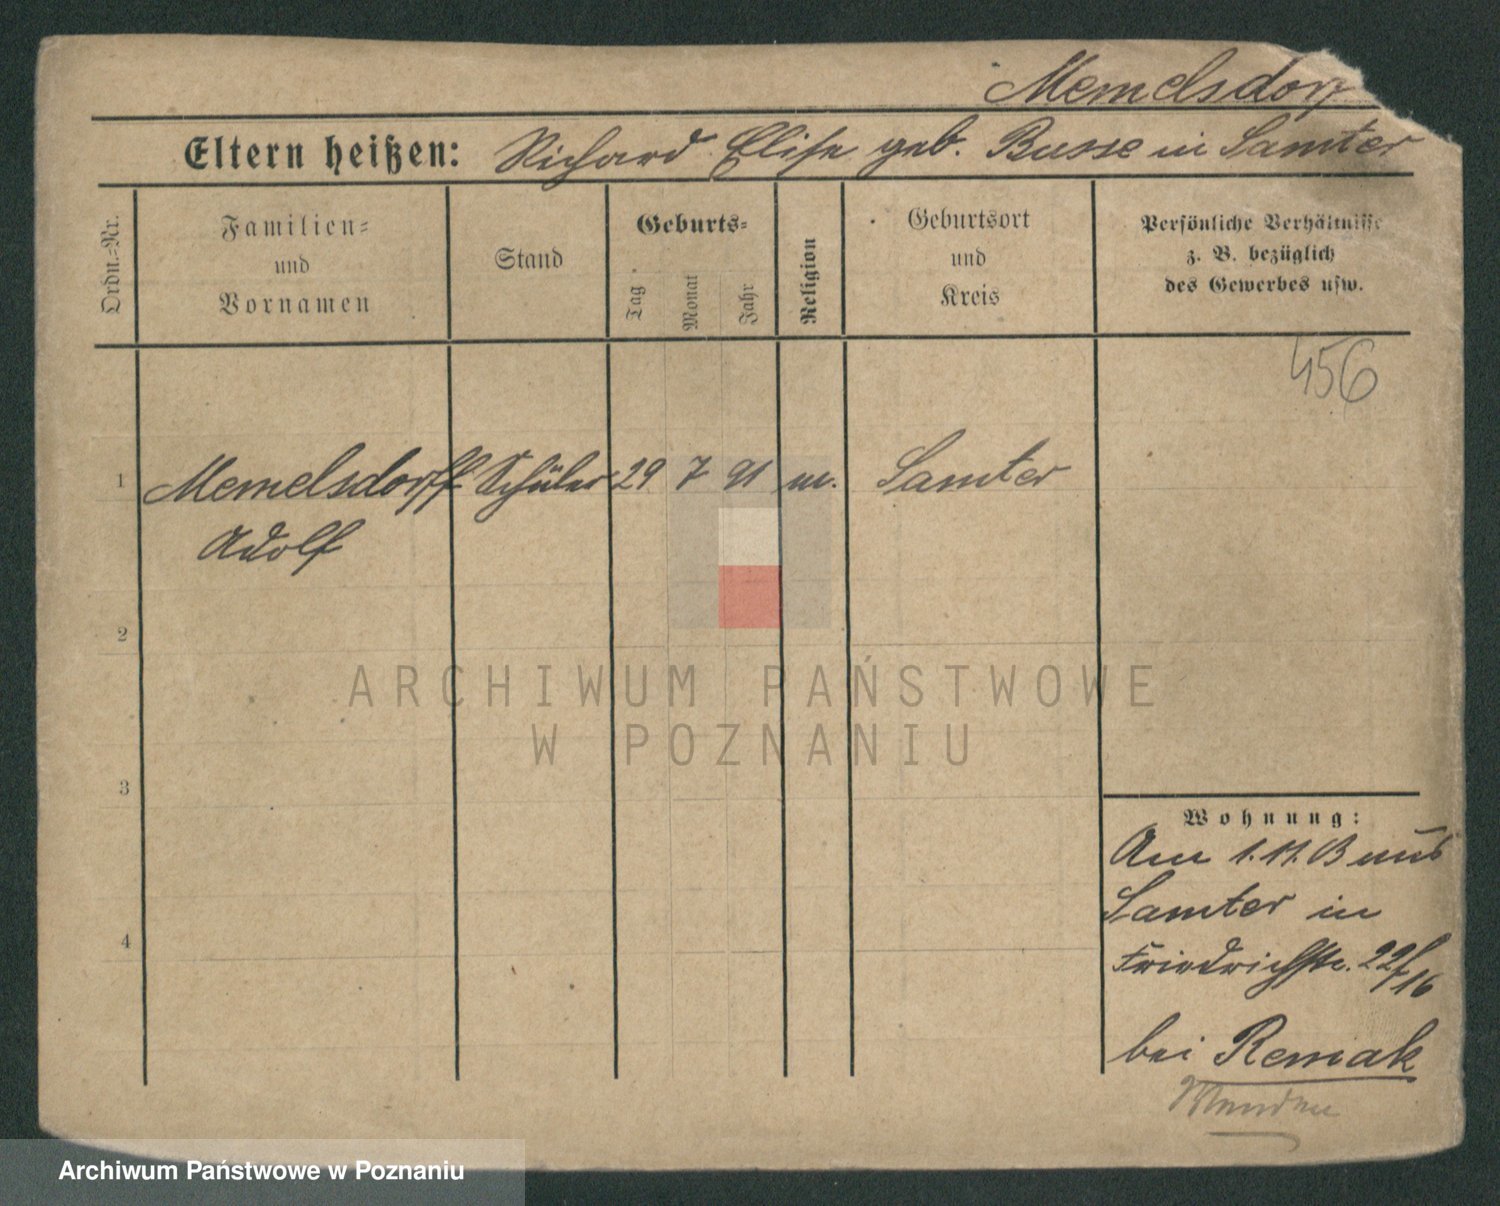 Memelsdorf
Eltern heißen: Richard Elise geb. Busse in Samter
Ordn.-Nr.
Familien-
und
Vornamen
Stand
Geburts-
Tag
Monat
Jahr
Religion
Geburtsort
und
Kreis
Persönliche Verhältnisse
z. B. bezüglich
des Gewerbes usw.
456
1 Memelsdorff Schüler 29 7 91 m. Samter
Adolf
2
3
4
Wohnung:
Am 1.11. B aus
Samter in
Friedrichstr. 22/16
bei Remak
ARCHIWUM PAŃSTWOWE
W POZNANIU
Archiwum Państwowe w Poznaniu